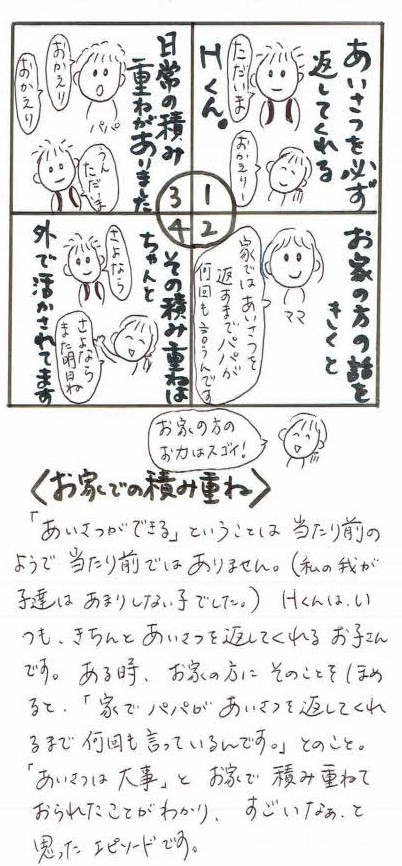 あいさつを必ず
返してくれる
Hくん。
ただいま
おかえりー
1
お家の方の話を
きくと
ママ
家ではあいさつを
返すまでパパが
何回も言うんです
2
日常の積み
重ねがありました
おかえり
おかえり
パパ
うん
ただいま
3
その積み重ねは
ちゃんと
外で活かされてます
さよなら
さよなら
また明日ね
4
お家の方の
お力はスゴイ!
〈お家での積み重ね〉
「あいさつができる」ということは 当たり前の
ようで 当たり前ではありません。(私の我が
子達は あまりしない子でした。) Hくんは、い
つも、きちんと あいさつを返してくれる お子さん
です。 ある時、お家の方に そのことを ほめ
ると、「家で パパが あいさつを返してくれ
るまで 何回も言っているんです。」とのこと。
「あいさつは 大事」と お家で 積み重ねて
おられたことがわかり、 すごいなぁ、と
思った エピソードです。